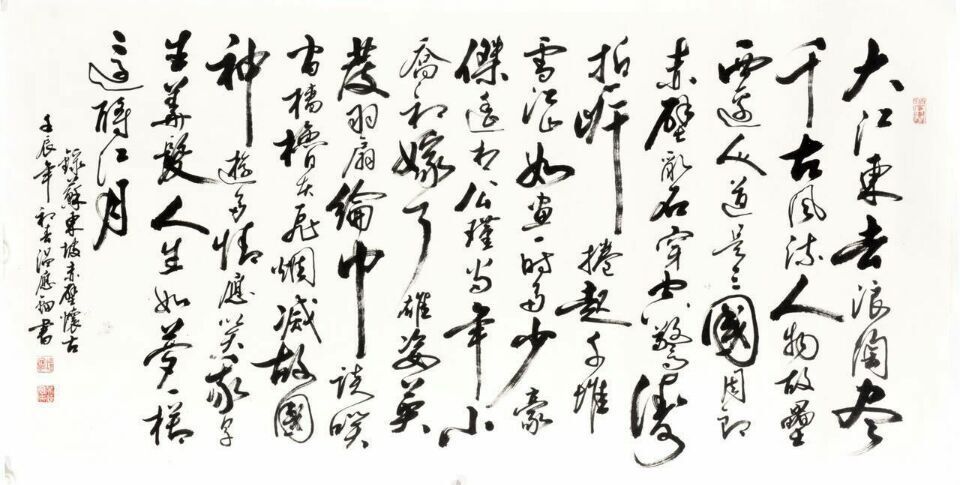 大江東去浪淘尽
千古風流人物故壘
西邊人道是三國周郎
赤壁亂石穿空驚濤
拍岸捲起千堆
雪江山如畫一時多少豪
傑遙想公瑾當年小
喬初嫁了雄姿英
發羽扇綸巾談笑
間檣櫓灰飛烟滅故國
神遊多情應笑我早
生華髮人生如夢一樽
還酹江月
錄蘇東坡赤壁懷古
壬辰年初春温應書